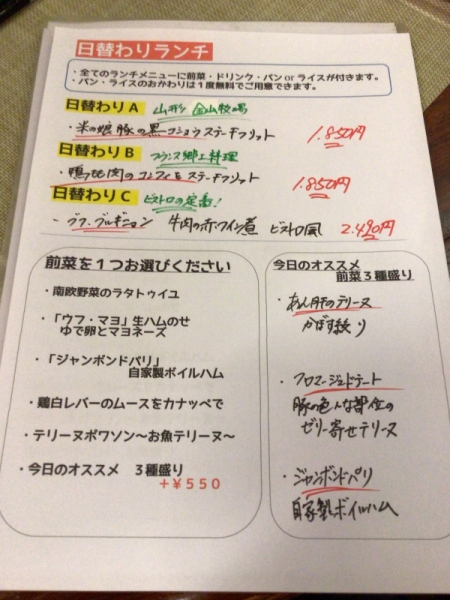 日替わりランチ
・全てのランチメニューに前菜・ドリンク・パン or ライスが付きます。
・パン・ライスのおかわりは１度無料でご用意できます。
日替わり A 山形 金山牧場
・米の娘豚の黒コショウステーキフリット 1.850円
日替わり B フランス郷土料理
・鴨モモ肉のコンフィ＆ステーキフリット 1.850円
日替わり C ビストロの定番！
・ブフ・ブルギニョン 牛肉の赤ワイン煮 ビストロ風 2.490円
前菜を１つお選びください
・南欧野菜のラタトゥイユ
・「ウフ・マヨ」生ハムのせ
ゆで卵とマヨネーズ
・「ジャンボンドパリ」
自家製ボイルハム
・鶏白レバーのムースをカナッペで
・テリーヌポワソン～お魚テリーヌ～
・今日のオススメ　３種盛り
＋￥５５０
今日のオススメ
前菜３種盛り
・あん肝のテリーヌ
かぼす絞り
・フロマージュドテート
豚の色んな部位の
ゼリー寄せテリーヌ
・ジャンボンドパリ
自家製ボイルハム